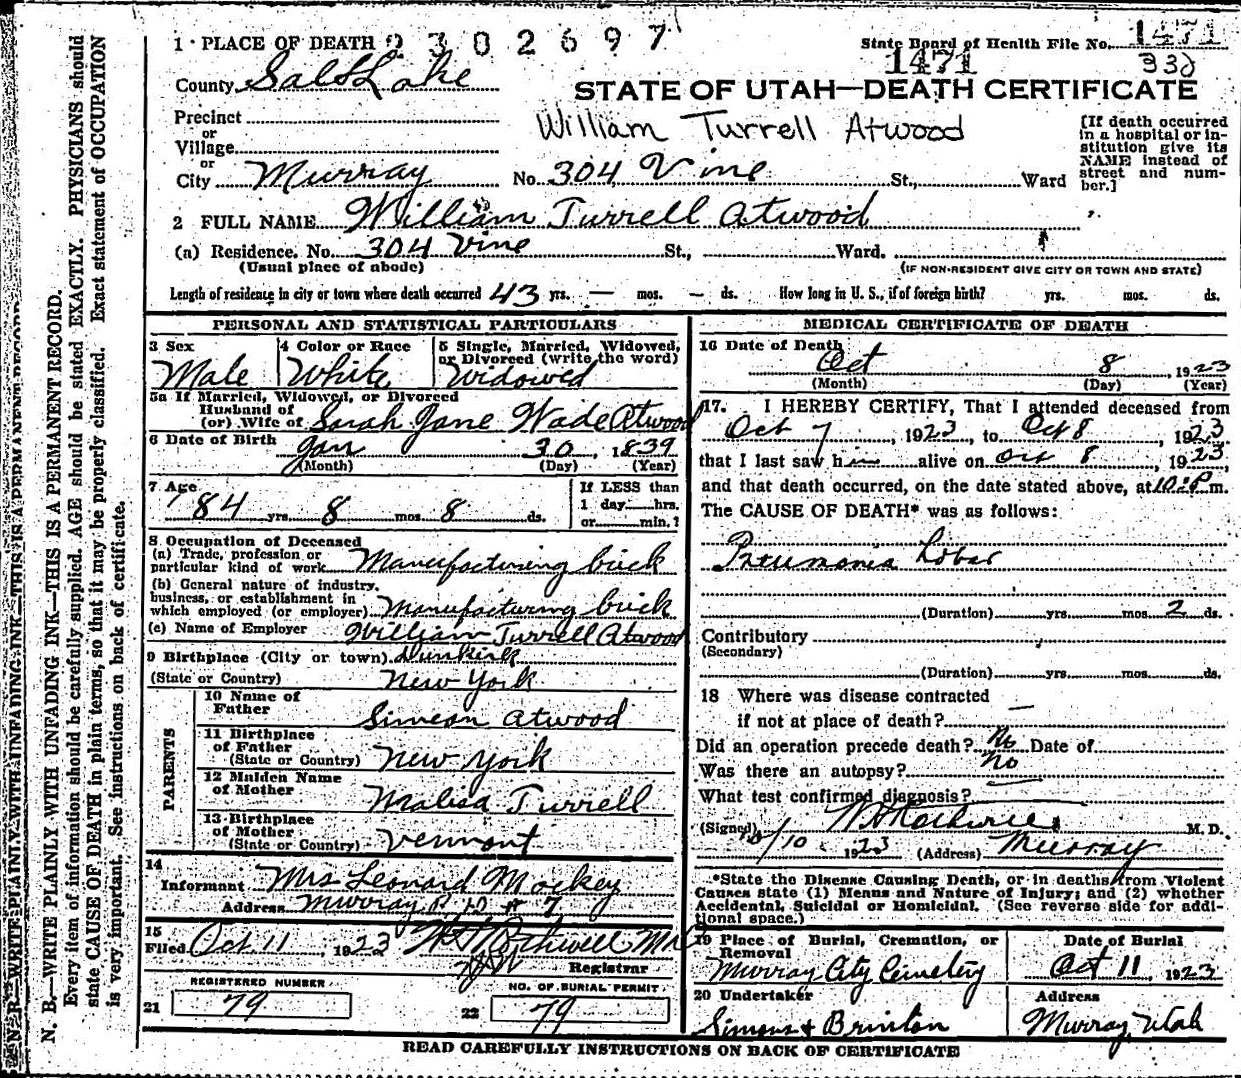 1 PLACE OF DEATH 2302697
State Board of Health File No. 1471
1471 330
County Salt Lake
STATE OF UTAH—DEATH CERTIFICATE
Precinct
or
Village
or
City Murray No. 304 Vine St., Ward
William Turrell Atwood
[If death occurred
in a hospital or in-
stitution give its
NAME instead of
street and num-
ber.]
2 FULL NAME William Turrell Atwood
(a) Residence. No. 304 Vine St., Ward.
(Usual place of abode)
(IF NON-RESIDENT GIVE CITY OR TOWN AND STATE)
Length of residence in city or town where death occurred 43 yrs. — mos. — ds. How long in U. S., if of foreign birth? yrs. mos. ds.
PERSONAL AND STATISTICAL PARTICULARS
3 Sex 4 Color or Race 5 Single, Married, Widowed,
or Divorced (write the word)
Male White Widowed
5a If Married, Widowed, or Divorced
Husband of
(or) Wife of Sarah Jane Wade Atwood
6 Date of Birth Jan 30, 1839
(Month) (Day) (Year)
7 Age
84 yrs. 8 mos. 8 ds.
If LESS than
1 day hrs.
or min.?
8 Occupation of Deceased
(a) Trade, profession or
particular kind of work Manufacturing brick
(b) General nature of industry,
business, or establishment in
which employed (or employer) Manufacturing brick
(c) Name of Employer William Turrell Atwood
9 Birthplace (City or town) Dunkirk
(State or Country) New York
PARENTS
10 Name of
Father Simeon Atwood
11 Birthplace
of Father
(State or Country) New York
12 Maiden Name
of Mother Malisa Turrell
13 Birthplace
of Mother
(State or Country) Vermont
14
Informant Mrs Leonard Mackey
Address Murray R D # 7
15
Filed Oct 11, 1923
Registrar
REGISTERED NUMBER
21 79
NO. OF BURIAL PERMIT
22 79
MEDICAL CERTIFICATE OF DEATH
16 Date of Death
Oct 8, 1923
(Month) (Day) (Year)
17. I HEREBY CERTIFY, That I attended deceased from
Oct 7, 1923, to Oct 8, 1923
that I last saw him alive on Oct 8, 1923,
and that death occurred, on the date stated above, at 10 P m.
The CAUSE OF DEATH* was as follows:
Pneumonia Lobar
(Duration) yrs. mos. 2 ds.
Contributory
(Secondary)
(Duration) yrs. mos. ds.
18 Where was disease contracted
if not at place of death? —
Did an operation precede death? No Date of
Was there an autopsy? no
What test confirmed diagnosis?
(Signed) M. D.
10/10 1923 (Address) Murray
*State the Disease Causing Death, or in deaths from Violent
Causes state (1) Means and Nature of Injury; and (2) whether
Accidental, Suicidal or Homicidal. (See reverse side for addi-
tional space.)
19 Place of Burial, Cremation, or
Removal
Murray City Cemetery
Date of Burial
Oct 11, 1923
20 Undertaker
Simons & Brinton
Address
Murray, Utah
READ CAREFULLY INSTRUCTIONS ON BACK OF CERTIFICATE
N. B.—WRITE PLAINLY WITH UNFADING INK—THIS IS A PERMANENT RECORD.
Every item of information should be carefully supplied. AGE should be stated EXACTLY. PHYSICIANS should
state CAUSE OF DEATH in plain terms, so that it may be properly classified. Exact statement of OCCUPATION
is very important. See instructions on back of certificate.